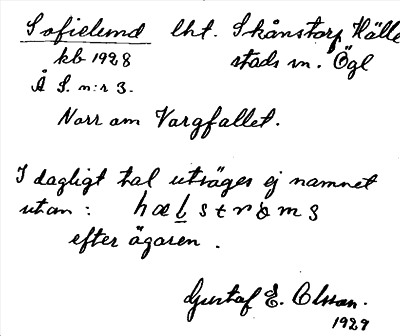 Sofielund lht. Skånstorp Hälle
kb 1928 stads sn. Ögl
Å S. n:r 3.
Norr om Vargfallet.
I dagligt tal utsäges ej namnet
utan: hælstrøms
efter ägaren.
Gustaf E. Olsson.
1929